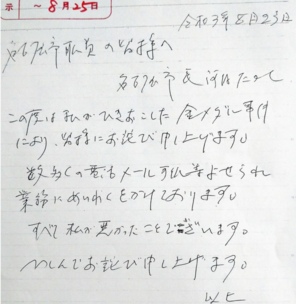 示
~8月25日
令和3年8月23日
名古屋市職員の皆様へ
名古屋市長 河村たかし
この度は私がひきおこした金メダル事件
により、皆様にお詫び申し上げます。
数多くの電話メール等よせられ
業務にめいわくをかけております。
すべて私が悪かったことでございます。
お詫び申し上げます。
以上